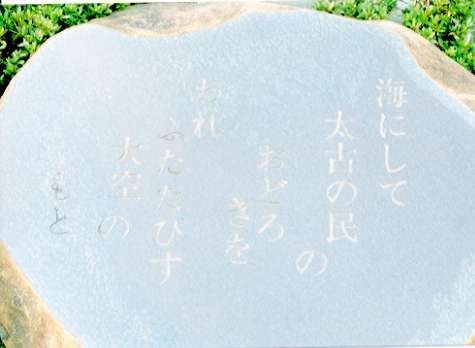 海にして
太古の民の
おどろ
きを
われ
ふたたびす
大空の
もと